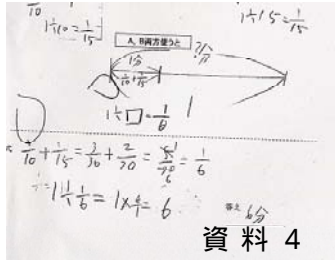 10
1÷10=1/15
1÷15=1/15
A, B両方使うと
1分
?分
1/10+1/15
1÷□=1/6
1
1/10+1/15=3/30+2/30=5/30=1/6
1÷1/6=1×6/1=6
答え 6分
資料4